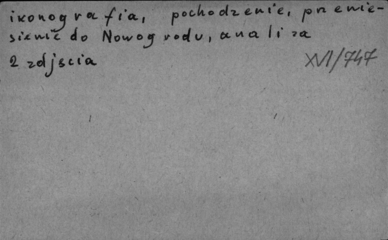 ikonografia, pochodzenie, przenie-
sienie do Nowogrodu, analiza
2 zdjścia XVI/747